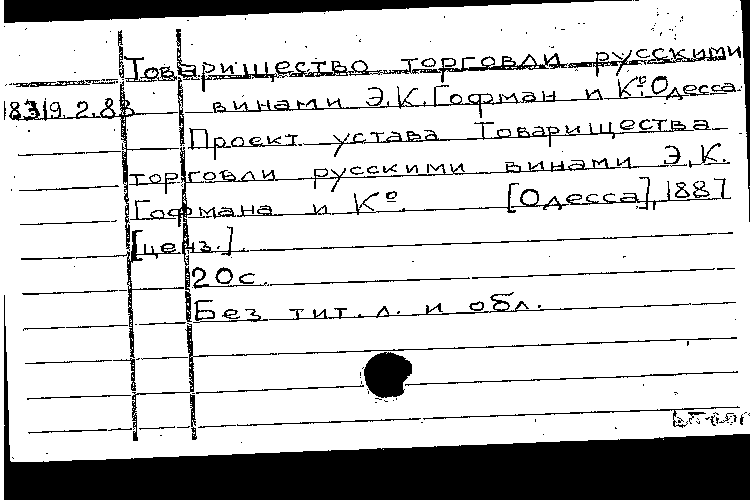 Товарищество торговли русскими
18319.2.83 винами Э.К.Гофман и Кº. Одесса.
Проект устава Товарищества
торговли русскими винами Э.К.
Гофмана и Кº. [Одесса], 1887
[ценз.].
20с.
Без тит. л. и обл.